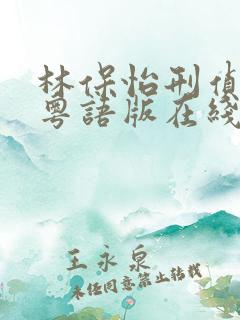 林保怡刑偵
粵語版在綫
王永泉
未經同意禁止轉載